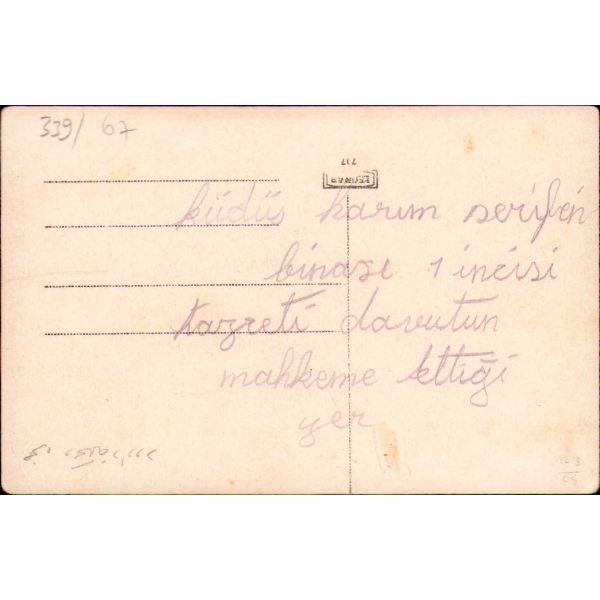 339/ 67
717
LEONAR
küdüs harım serifen
binase 1 incisi
hazreti davutun
mahkeme ettiği
yer